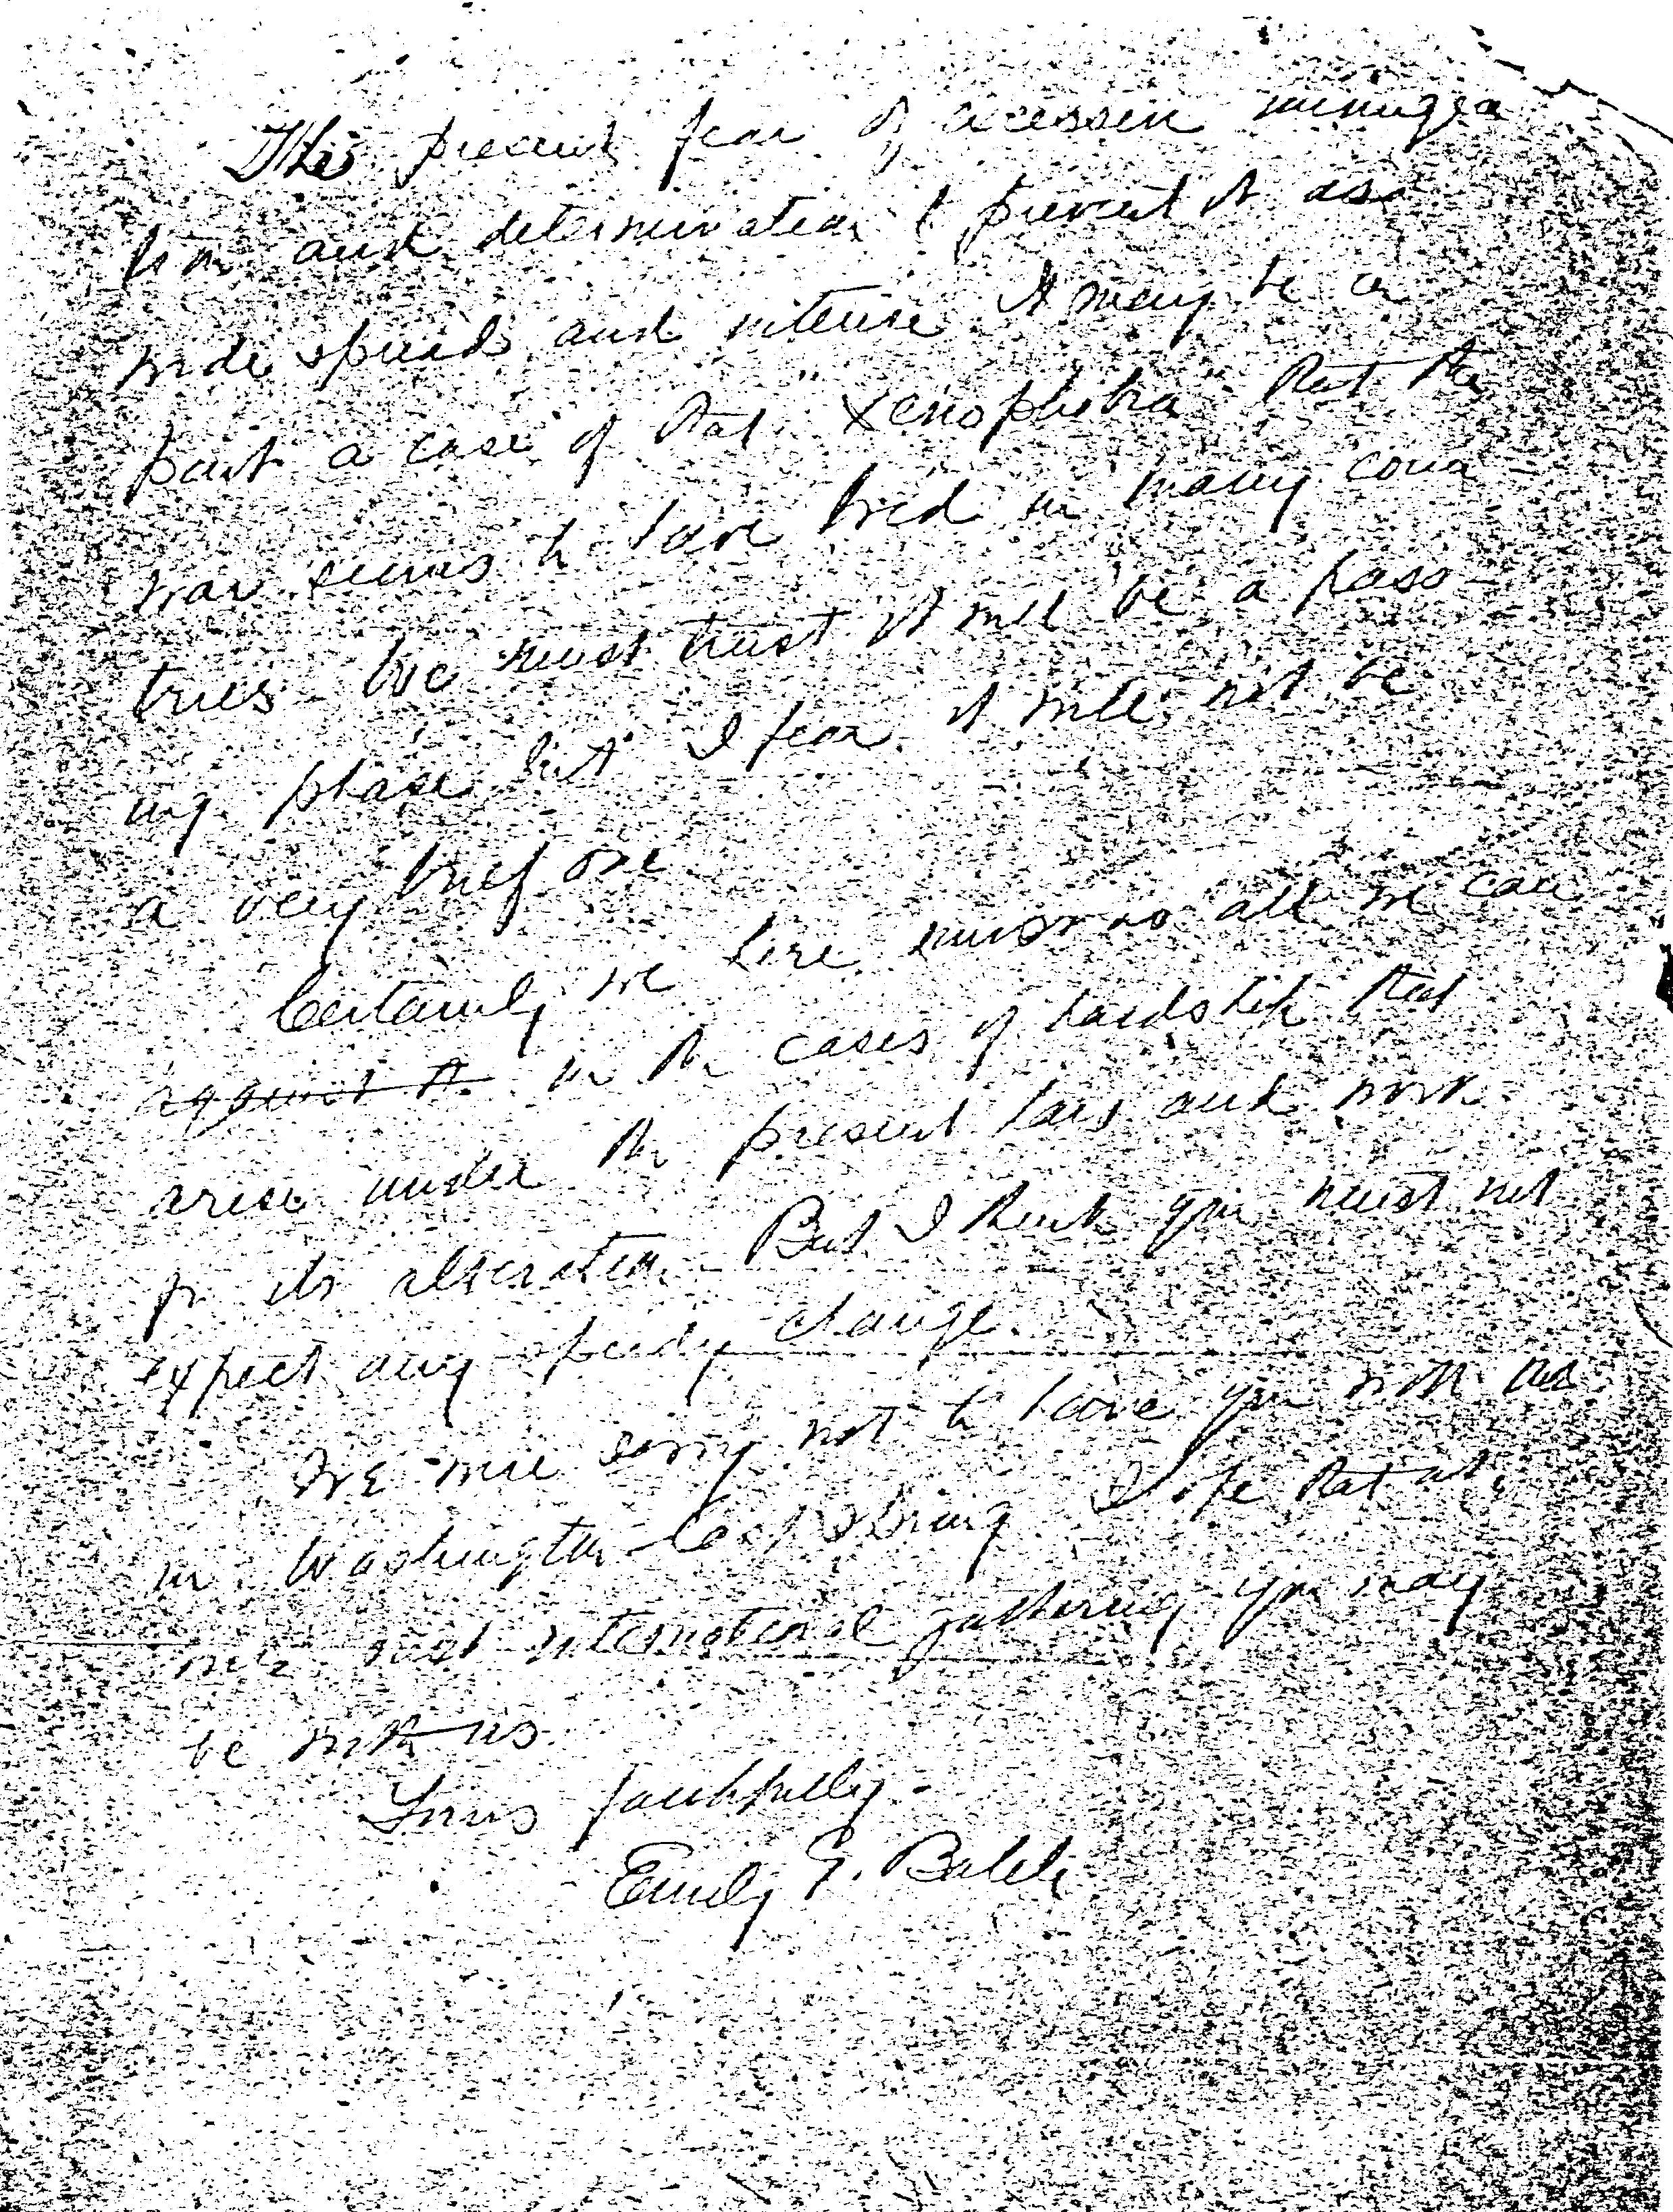 The present fear of excessive immigra
tion and determination to prevent it are
wide spread and intense. It may be in
part a case of that "xenophobia" that the
war seems to have bred in many coun
tries - We must trust it will be a pass-
ing phase but I fear it will not be
a very brief one
Certainly we here must do all we can
against it in the cases of hardship that
arise under the present law and work
for its alteration - But I think you must not
expect any speedy change.
We were sorry not to have you with us
in Washington last spring. I hope that at
our next international gathering you may
be with us.
Yours faithfully -
Emily G. Balch